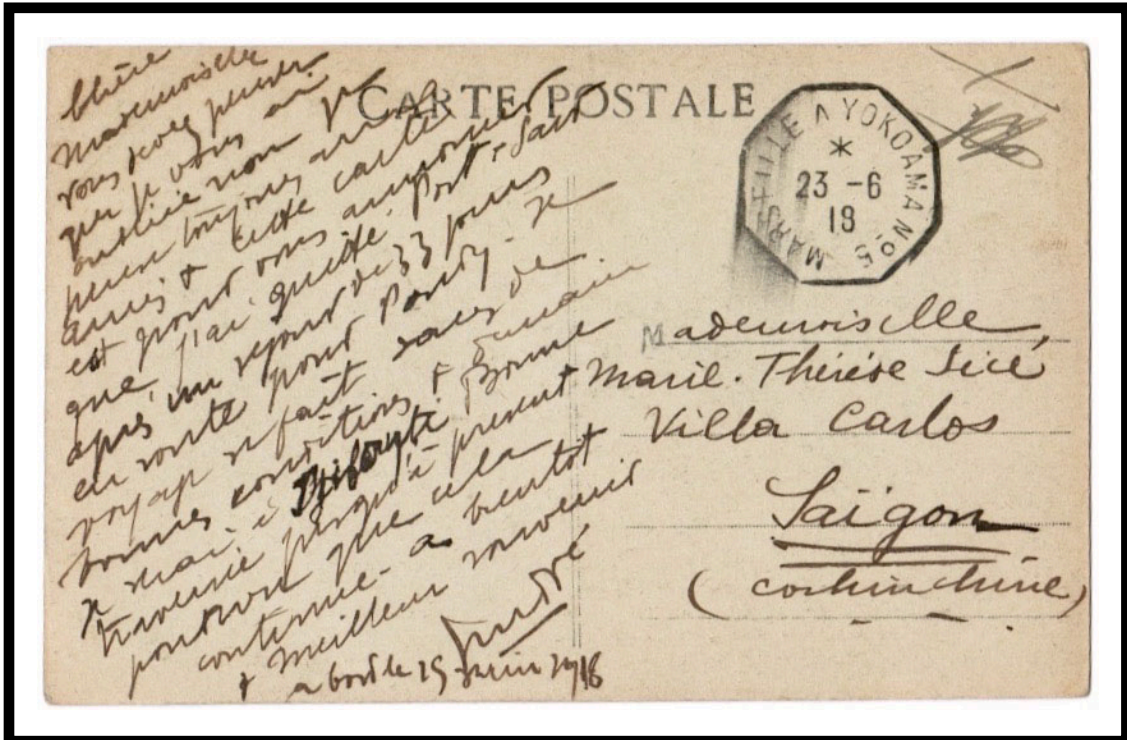 CARTE POSTALE
Chère
Mademoiselle
vous penser
que je vous ai
oublié non je
pense toujours aux
amis & cette carte
est pour vous annoncer
que j'ai quitté Port-Saïd
après un séjour de jours
en route pour Pondy. Le
voyage se fait dans de
bonnes conditions & demain
je serai à Djibouti. Bonne
traversée jusqu'à présent
pourvu que cela
continue - à bientôt
& meilleur souvenir
André
a bord le Juin 1918
MARSEILLE A YOKOAMA No 5
*
23 -6
18
Mademoiselle,
Marie-Thérèse Sicé
Villa Carlos
Saïgon
(cochinchine)